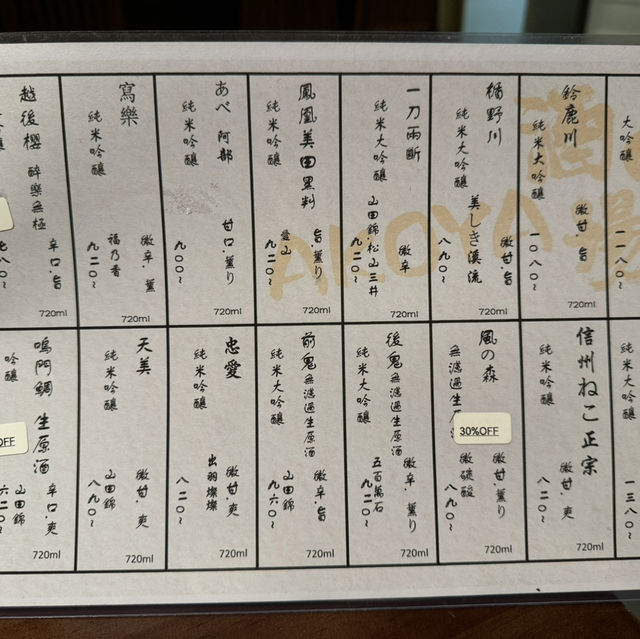 大吟釀
一一八〇~
鈴鹿川
純米大吟釀
微甘．旨
一〇八〇~
720ml
楯野川
純米大吟釀
美しき溪流
微甘．旨
八八〇~
720ml
一刀兩斷
純米大吟釀
山田錦．松山三井
微辛
九二〇~
720ml
鳳凰美田黑判
純米吟釀
愛山
旨．薰り
九二〇~
720ml
あべ 阿部
純米吟釀
甘口．薰り
九〇〇~
720ml
寫樂
純米吟釀
福乃香
微辛．薰
九二〇~
720ml
越後櫻 醉樂無極
辛口．旨
七八〇~
720ml
純米大吟釀
一三八〇~
信州ねこ正宗
純米吟釀
微甘．爽
八二〇~
720ml
風の森
無濾過生
30%OFF
微碳酸
微甘．薰り
八九〇~
720ml
後鬼無濾過生原酒
純米大吟釀
五百萬石
微辛．薰り
九〇〇~
720ml
前鬼無濾過生原酒
純米大吟釀
山田錦
微辛．旨
九六〇~
720ml
忠愛
純米吟釀
出羽燦燦
微甘．爽
八二〇~
720ml
天美
純米吟釀
山田錦
微甘．爽
八九〇~
720ml
鳴門鯛 生原酒
吟釀
OFF
山田錦
辛口．爽
六二〇~
720ml
AKOYA